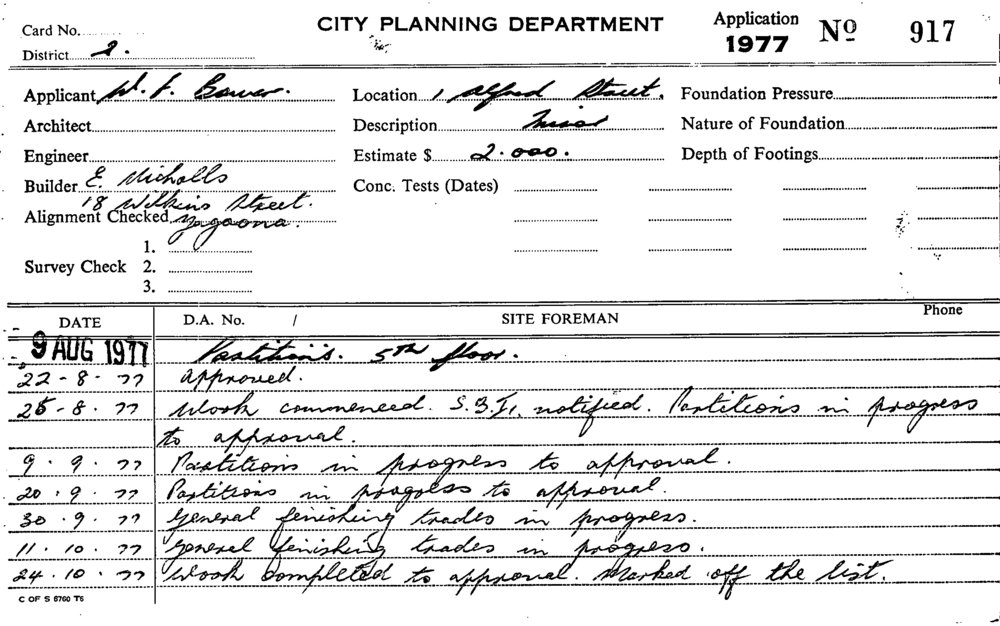 CITY PLANNING DEPARTMENT
Application
1977 Nº 917
Card No.
District 2.
Applicant W. F. Bower.
Location 1 Alfred Street.
Foundation Pressure
Architect
Description Misc
Nature of Foundation
Engineer
Estimate $ 2.000.
Depth of Footings
Builder E. Nicholls
18 Wilkins Street.
Conc. Tests (Dates)
Alignment Checked Yagoona.
1.
Survey Check 2.
3.
DATE D.A. No. / SITE FOREMAN Phone
9 AUG 1977 Partitions. 5th floor.
22-8-77 Approved.
25-8-77 Work commenced. S.B.I. notified. Partitions in progress
to approval.
9.9.77 Partitions in progress to approval.
20.9.77 Partitions in progress to approval.
30.9.77 General finishing trades in progress.
11.10.77 General finishing trades in progress.
24.10.77 Work completed to approval. Marked off the list.
C OF S 6760 T6